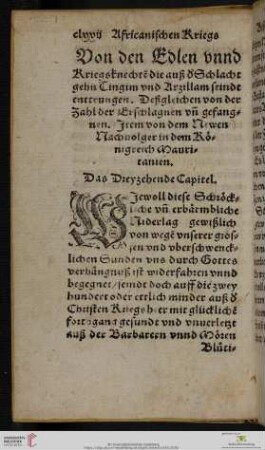 clxxij Africanischen Kriegs
Von den Edlen vnnd
Kriegsknechtē die auß d̕ Schlacht
gehn Tingim vnd Arzillam seindt
entrunnen. Deßgleichen von der
Zahl der Erschlagnen vñ gefang-
nen. Item von dem Newen
Nachuolger in dem Kö-
nigreich Mauri-
tanien.
Das Dreyzehende Capitel.
WIewoll diese Schröck-
liche vñ erbärmbliche
Niderlag gewißlich
von wegē vnserer gros-
sen vnd vberschwenck-
lichen Sunden vns durch Gottes
verhängnuß ist widerfahren vnnd
begegnet / seindt doch auff die zwey
hundert oder ettlich minder auß d̕
Christen Kriegsher mit glücklichē
fortgang gesundt vnd vnuerletzt
auß der Barbarern vnnd Moren
Blüti-